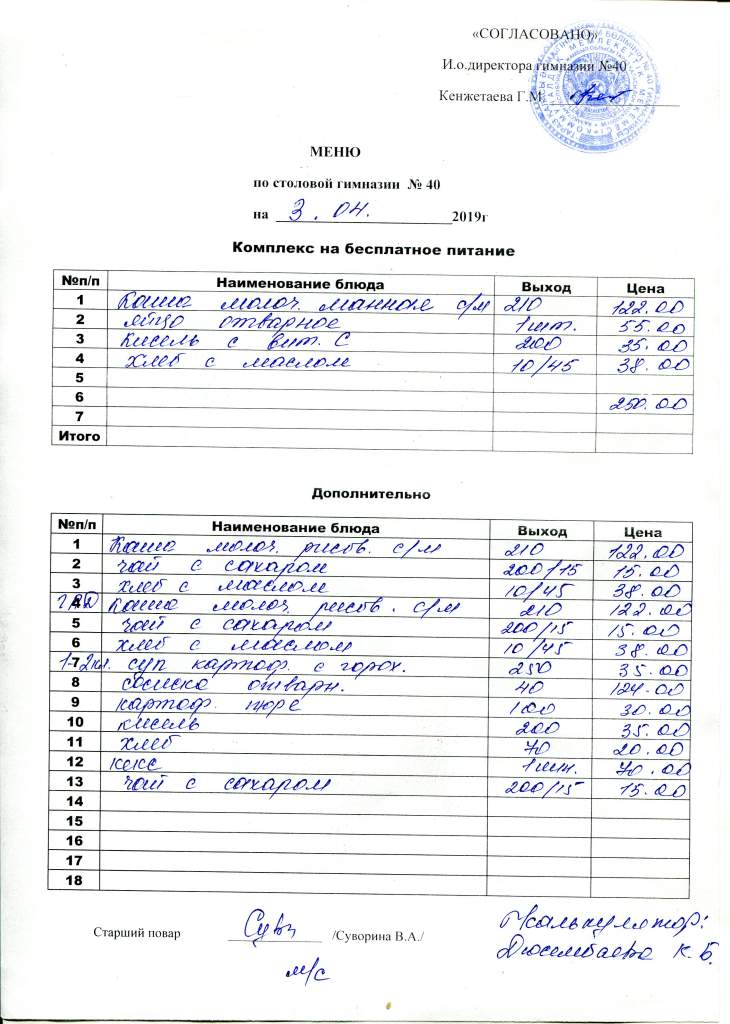 «СОГЛАСОВАНО»
И.о.директора гимназии №40
Кенжетаева Г.М.
МЕНЮ
по столовой гимназии № 40
на 3.04. 2019г
Комплекс на бесплатное питание
№п/п Наименование блюда Выход Цена
1 Каша молоч. манная с/м 210 122.00
2 яйцо отварное 1шт. 55.00
3 кисель с вит. С 200 35.00
4 хлеб с маслом 10/45 38.00
5
6 250.00
7
Итого
Дополнительно
№п/п Наименование блюда Выход Цена
1 Каша молоч. рисов. с/м 210 122.00
2 чай с сахаром 200/15 15.00
3 хлеб с маслом 10/45 38.00
4 Каша молоч. рисов. с/м 210 122.00
5 чай с сахаром 200/15 15.00
6 хлеб с маслом 10/45 38.00
7 1-2кл. суп картоф. с горох. 250 35.00
8 сосиска отварн. 40 124.00
9 картоф. пюре 100 30.00
10 кисель 200 35.00
11 хлеб 70 20.00
12 кекс 1шт. 70.00
13 чай с сахаром 200/15 15.00
14
15
16
17
18
Старший повар /Суворина В.А./
м/с
Калькулятор:
Дюсембаева К.Б.